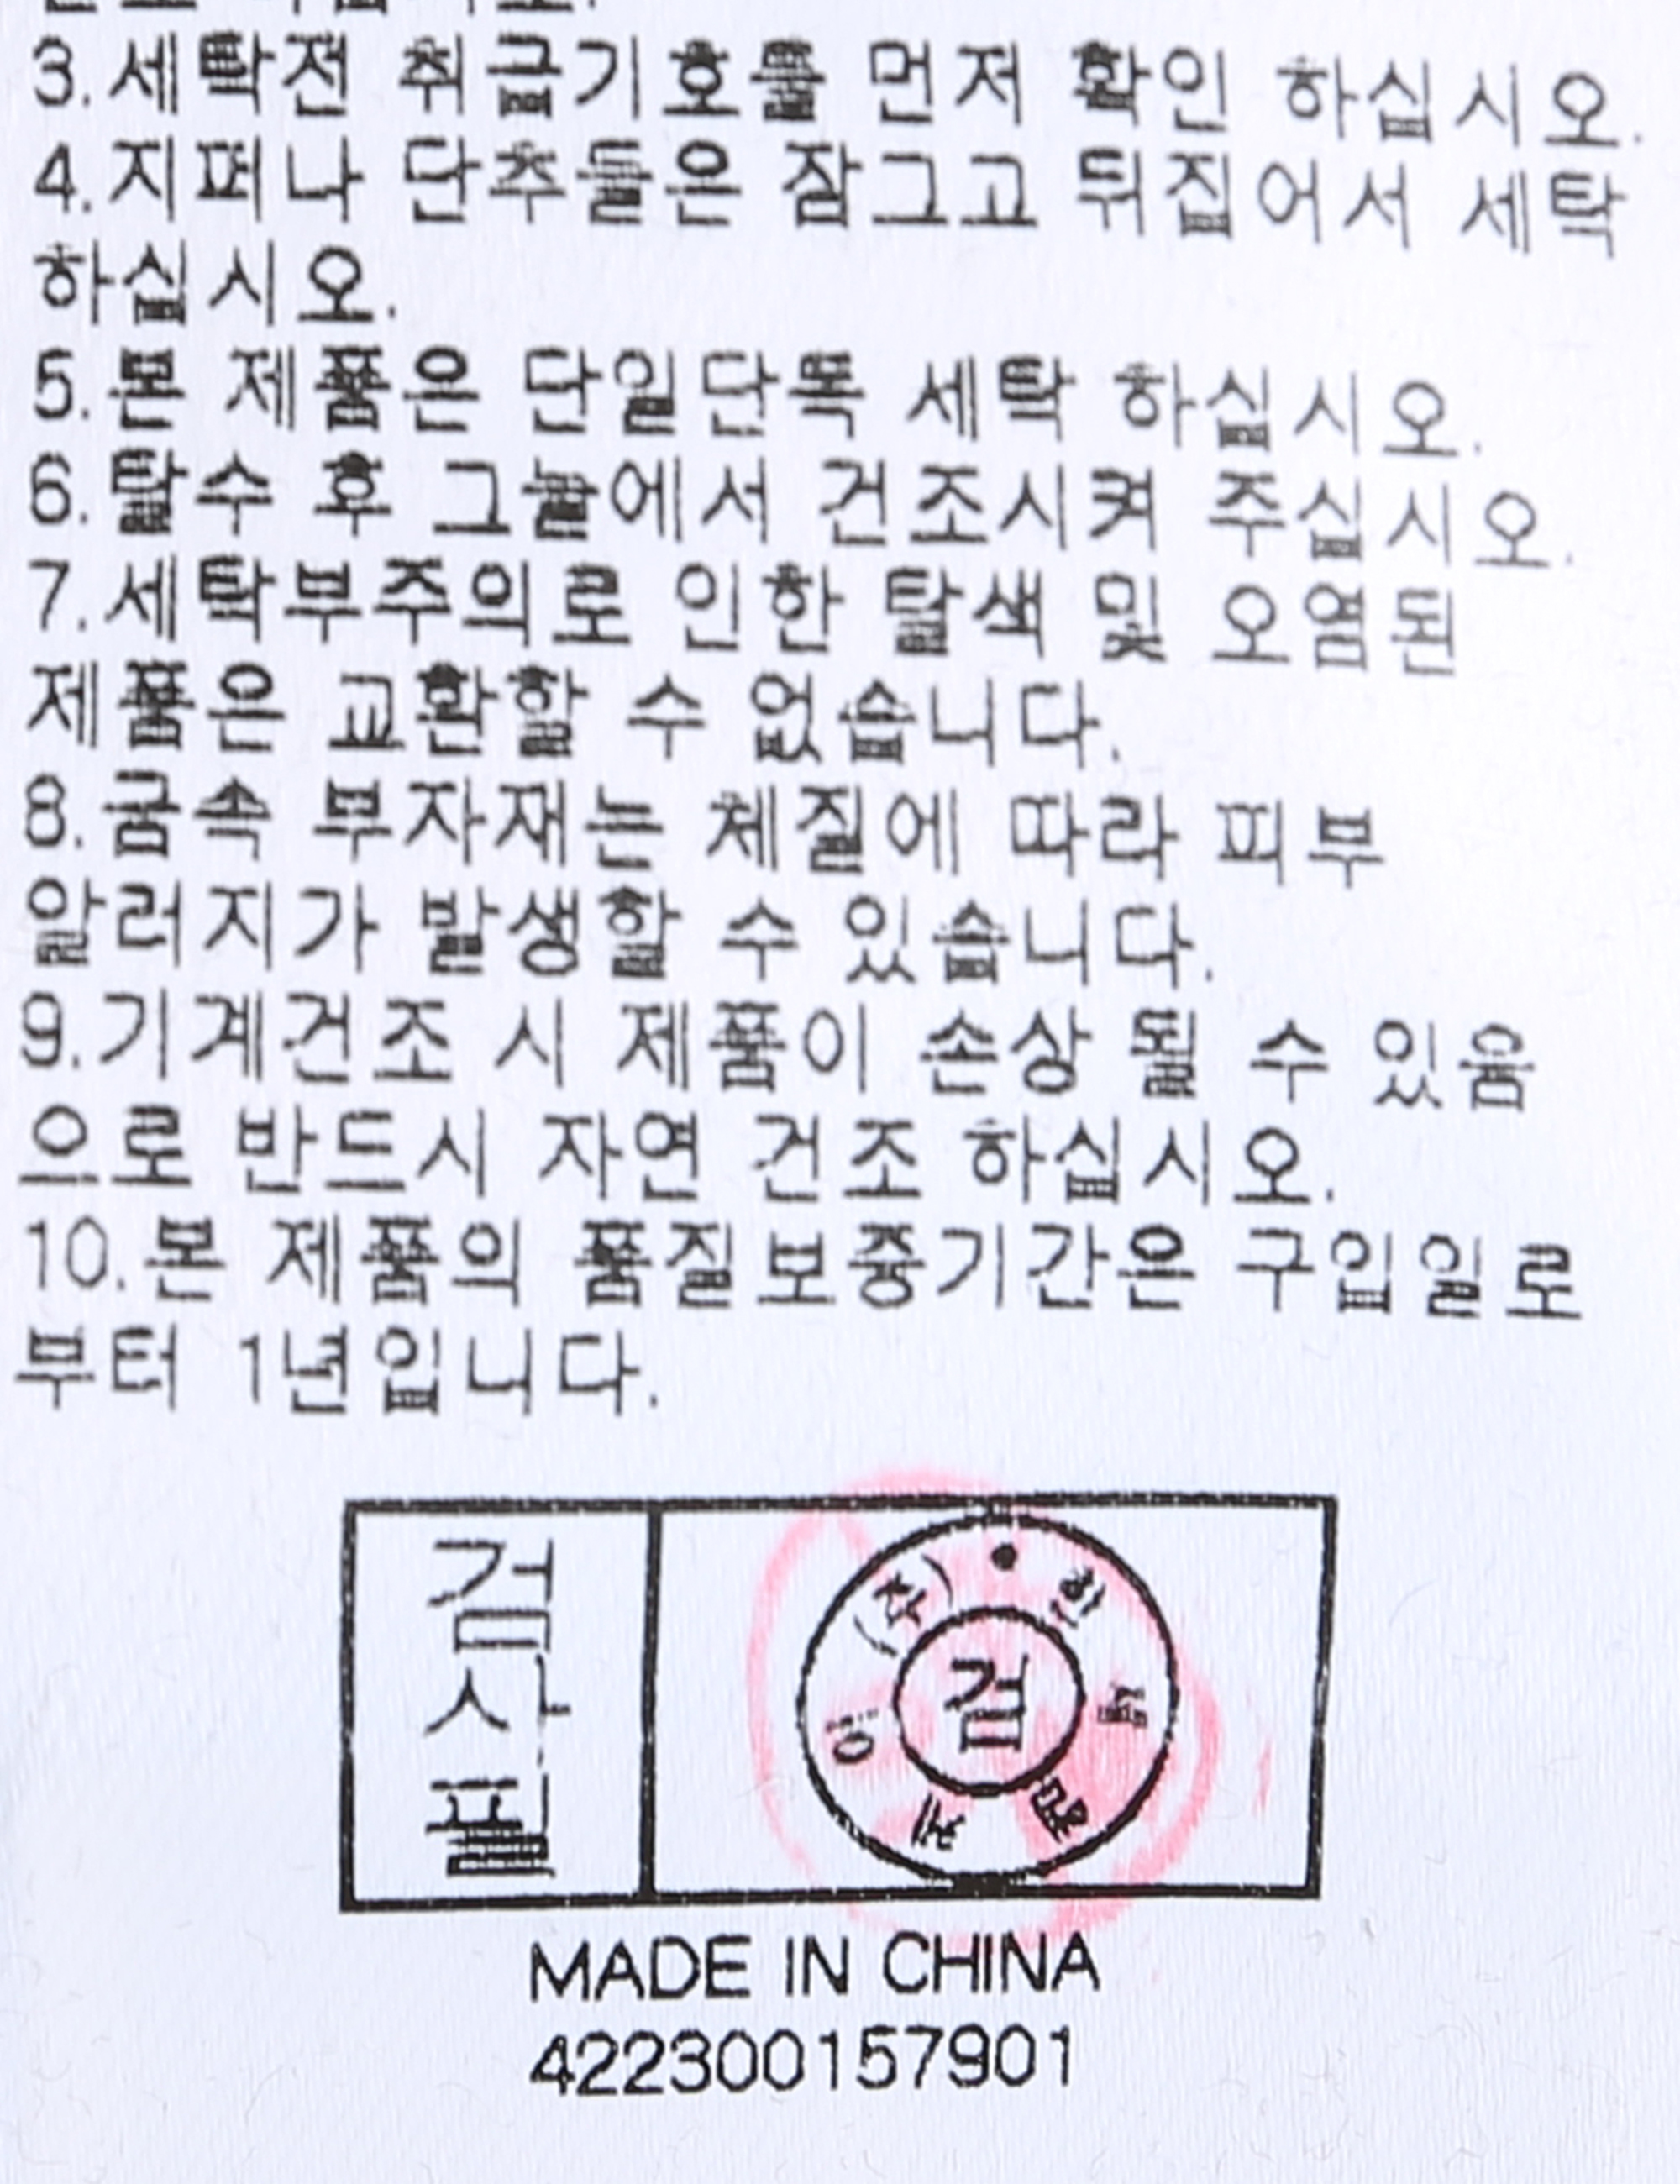 3.세탁전 취급기호를 먼저 확인 하십시오.
4.지퍼나 단추들은 잠그고 뒤집어서 세탁
하십시오.
5.본 제품은 단일단독 세탁 하십시오.
6.탈수 후 그늘에서 건조시켜 주십시오.
7.세탁부주의로 인한 탈색 및 오염된
제품은 교환할 수 없습니다.
8.금속 부자재는 체질에 따라 피부
알러지가 발생할 수 있습니다.
9.기계건조 시 제품이 손상 될 수 있음
으로 반드시 자연 건조 하십시오.
10.본 제품의 품질보증기간은 구입일로
부터 1년입니다.
검사필
검
MADE IN CHINA
422300157901